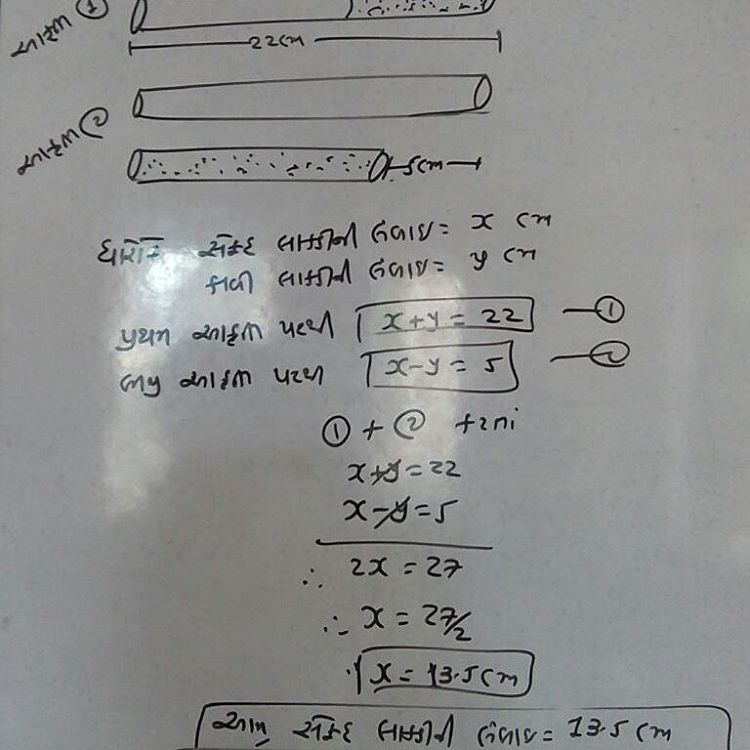 આકૃતિ ①
22cm
આકૃતિ ②
5cm
ધારોકે સફેદ લાકડીની લંબાઇ = x cm
કાળી લાકડીની લંબાઇ = y cm
પ્રથમ આકૃતિ પરથી x+y = 22 — ①
બીજી આકૃતિ પરથી x-y = 5 — ②
① + ② કરતાં
x+y=22
x-y=5
∴ 2x = 27
∴ x = 27/2
x = 13.5cm
આમ, સફેદ લાકડીની લંબાઇ = 13.5 cm